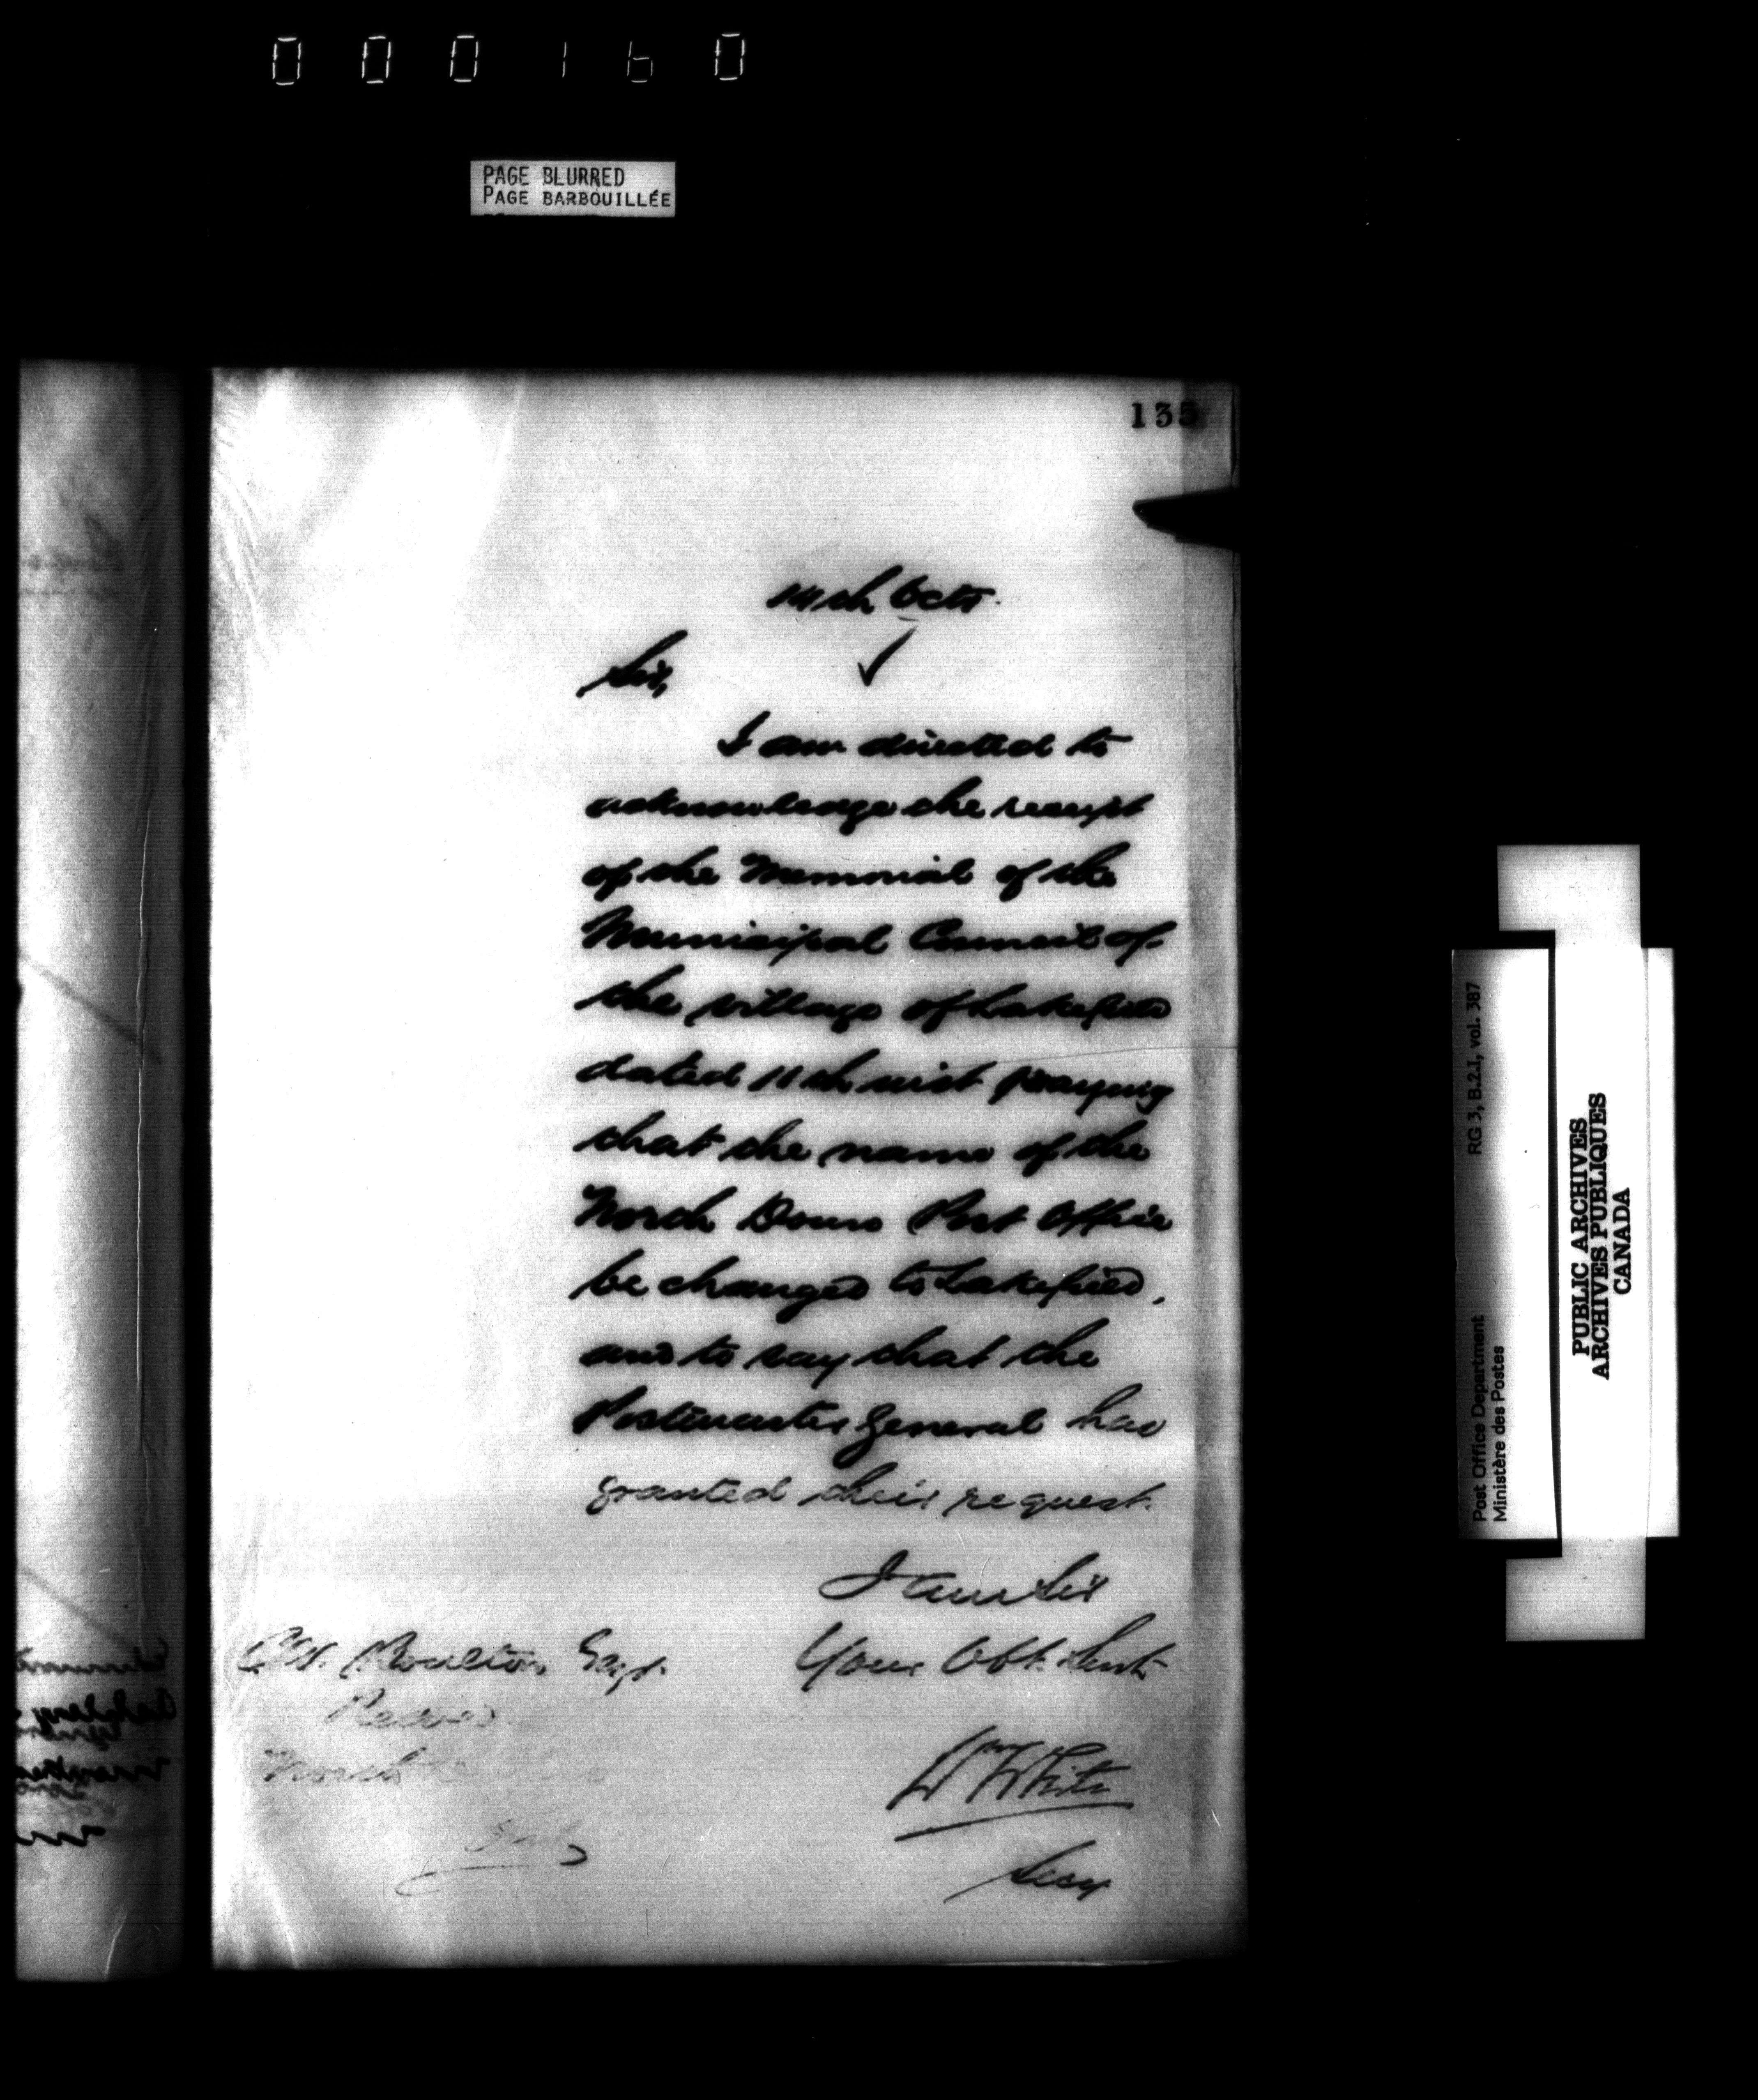 000160
PAGE BLURRED
PAGE BARBOUILLÉE
135
14th Octr.
Sir,
I am directed to
acknowledge the receipt
of the Memorial of the
Municipal Council of
the village of Lakefield
dated 11th inst praying
that the name of the
North Douro Post Office
be changed to Lakefield,
and to say that the
Postmaster General has
granted their request.
I am Sir
Your Obt. Servt.
Boulton Esqr.
Reeve
North
Wm White
Secy
RG 3, B.2.1, vol. 387
Post Office Department
Ministère des Postes
PUBLIC ARCHIVES
ARCHIVES PUBLIQUES
CANADA